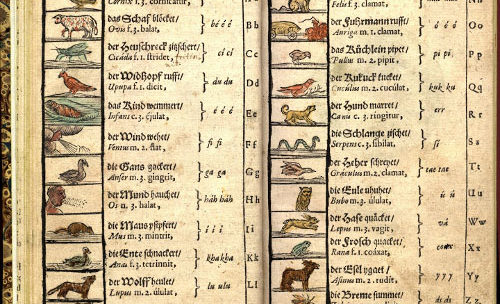 Cornix f. 3. cornicatur,
das Schaf blöcket/
Ovis f. 3. balat, } bé é é Bb
der Heuschreck zitschert/
Cicada f. 1. stridet, } ci ci Cc
der Widhopf rufft/
Upupa f. 1. dicit, } du du Dd
das Kind wemmert/
Infans c. 3. éjulat, } é é é Ee
der Wind wehet/
Ventus m. 2. flat, } fi fi Ff
die Gans gackert/
Anser m. 3. gingrit, } ga ga Gg
der Mund hauchet/
Os n. 3. halat, } háh háh Hh
die Maus pfipfert/
Mus m. 3. mintrit, } í í í Ii
die Ente schnackert/
Anas f. 3. tetrinnit, } kha kha Kk
der Wolff heulet/
Lupus m. 2. úlulat, } lu ulu Ll
Felis f. 3. clamat, Nn
der Fuhrmann rufft/
Auriga m. 1. clamat, } Oo
das Küchlein pipet/
Pullus m. 2. pipit, } pi pi Pp
der Kukuck kucket/
Cuculus m. 2. cucúlat, } kuk ku Qq
der Hund marret/
Canis c. 3. ringitur, } err Rr
die Schlange zischet/
Serpens c. 3. síbilat, } si Ss
der Heher schreyet/
Graculus m. 2. clamat, } tae tae Tt
die Eule uhuhet/
Bubo m. 3. úlulat, } ú ú Uu
der Hase quäcket/
Lepus m. 3. vagit, } vá Ww
der Frosch quacket/
Rana f. 1. coáxat, } coax Xx
der Esel ygaet/
Asinus m. 2. rudit, } yyy Yy
die Breme summet/
ds ds Zz